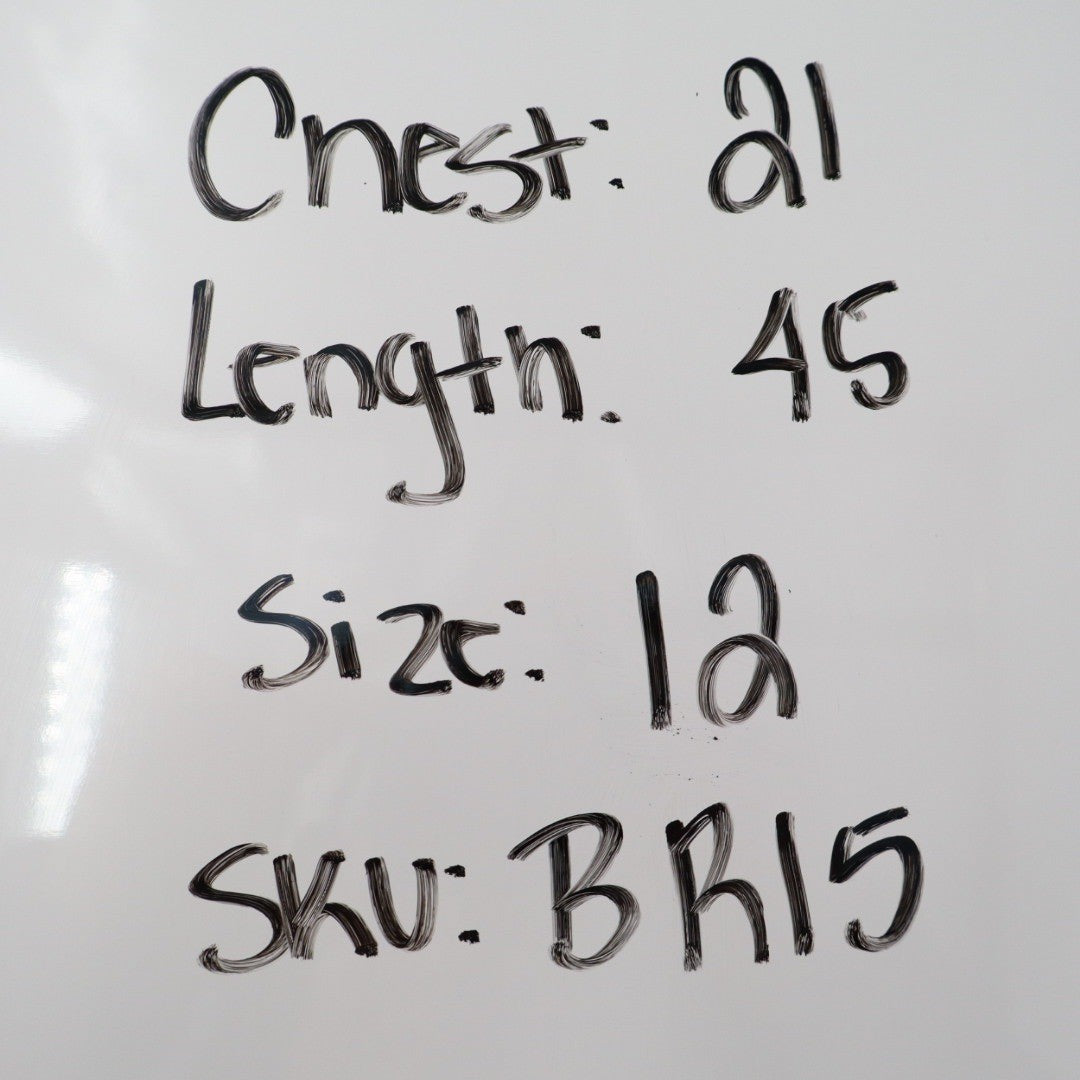 Chest: 21
Length: 45
Size: 12
SKU: BR15